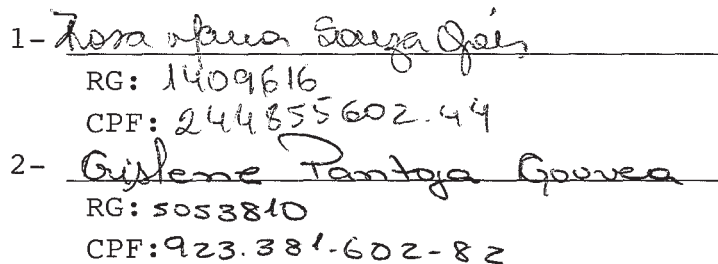 1- Rosa Maria Souza Góes
RG: 1409616
CPF: 244855602.44
2- Gislene Pantoja Gouvea
RG: 5053810
CPF: 923.381.602-82